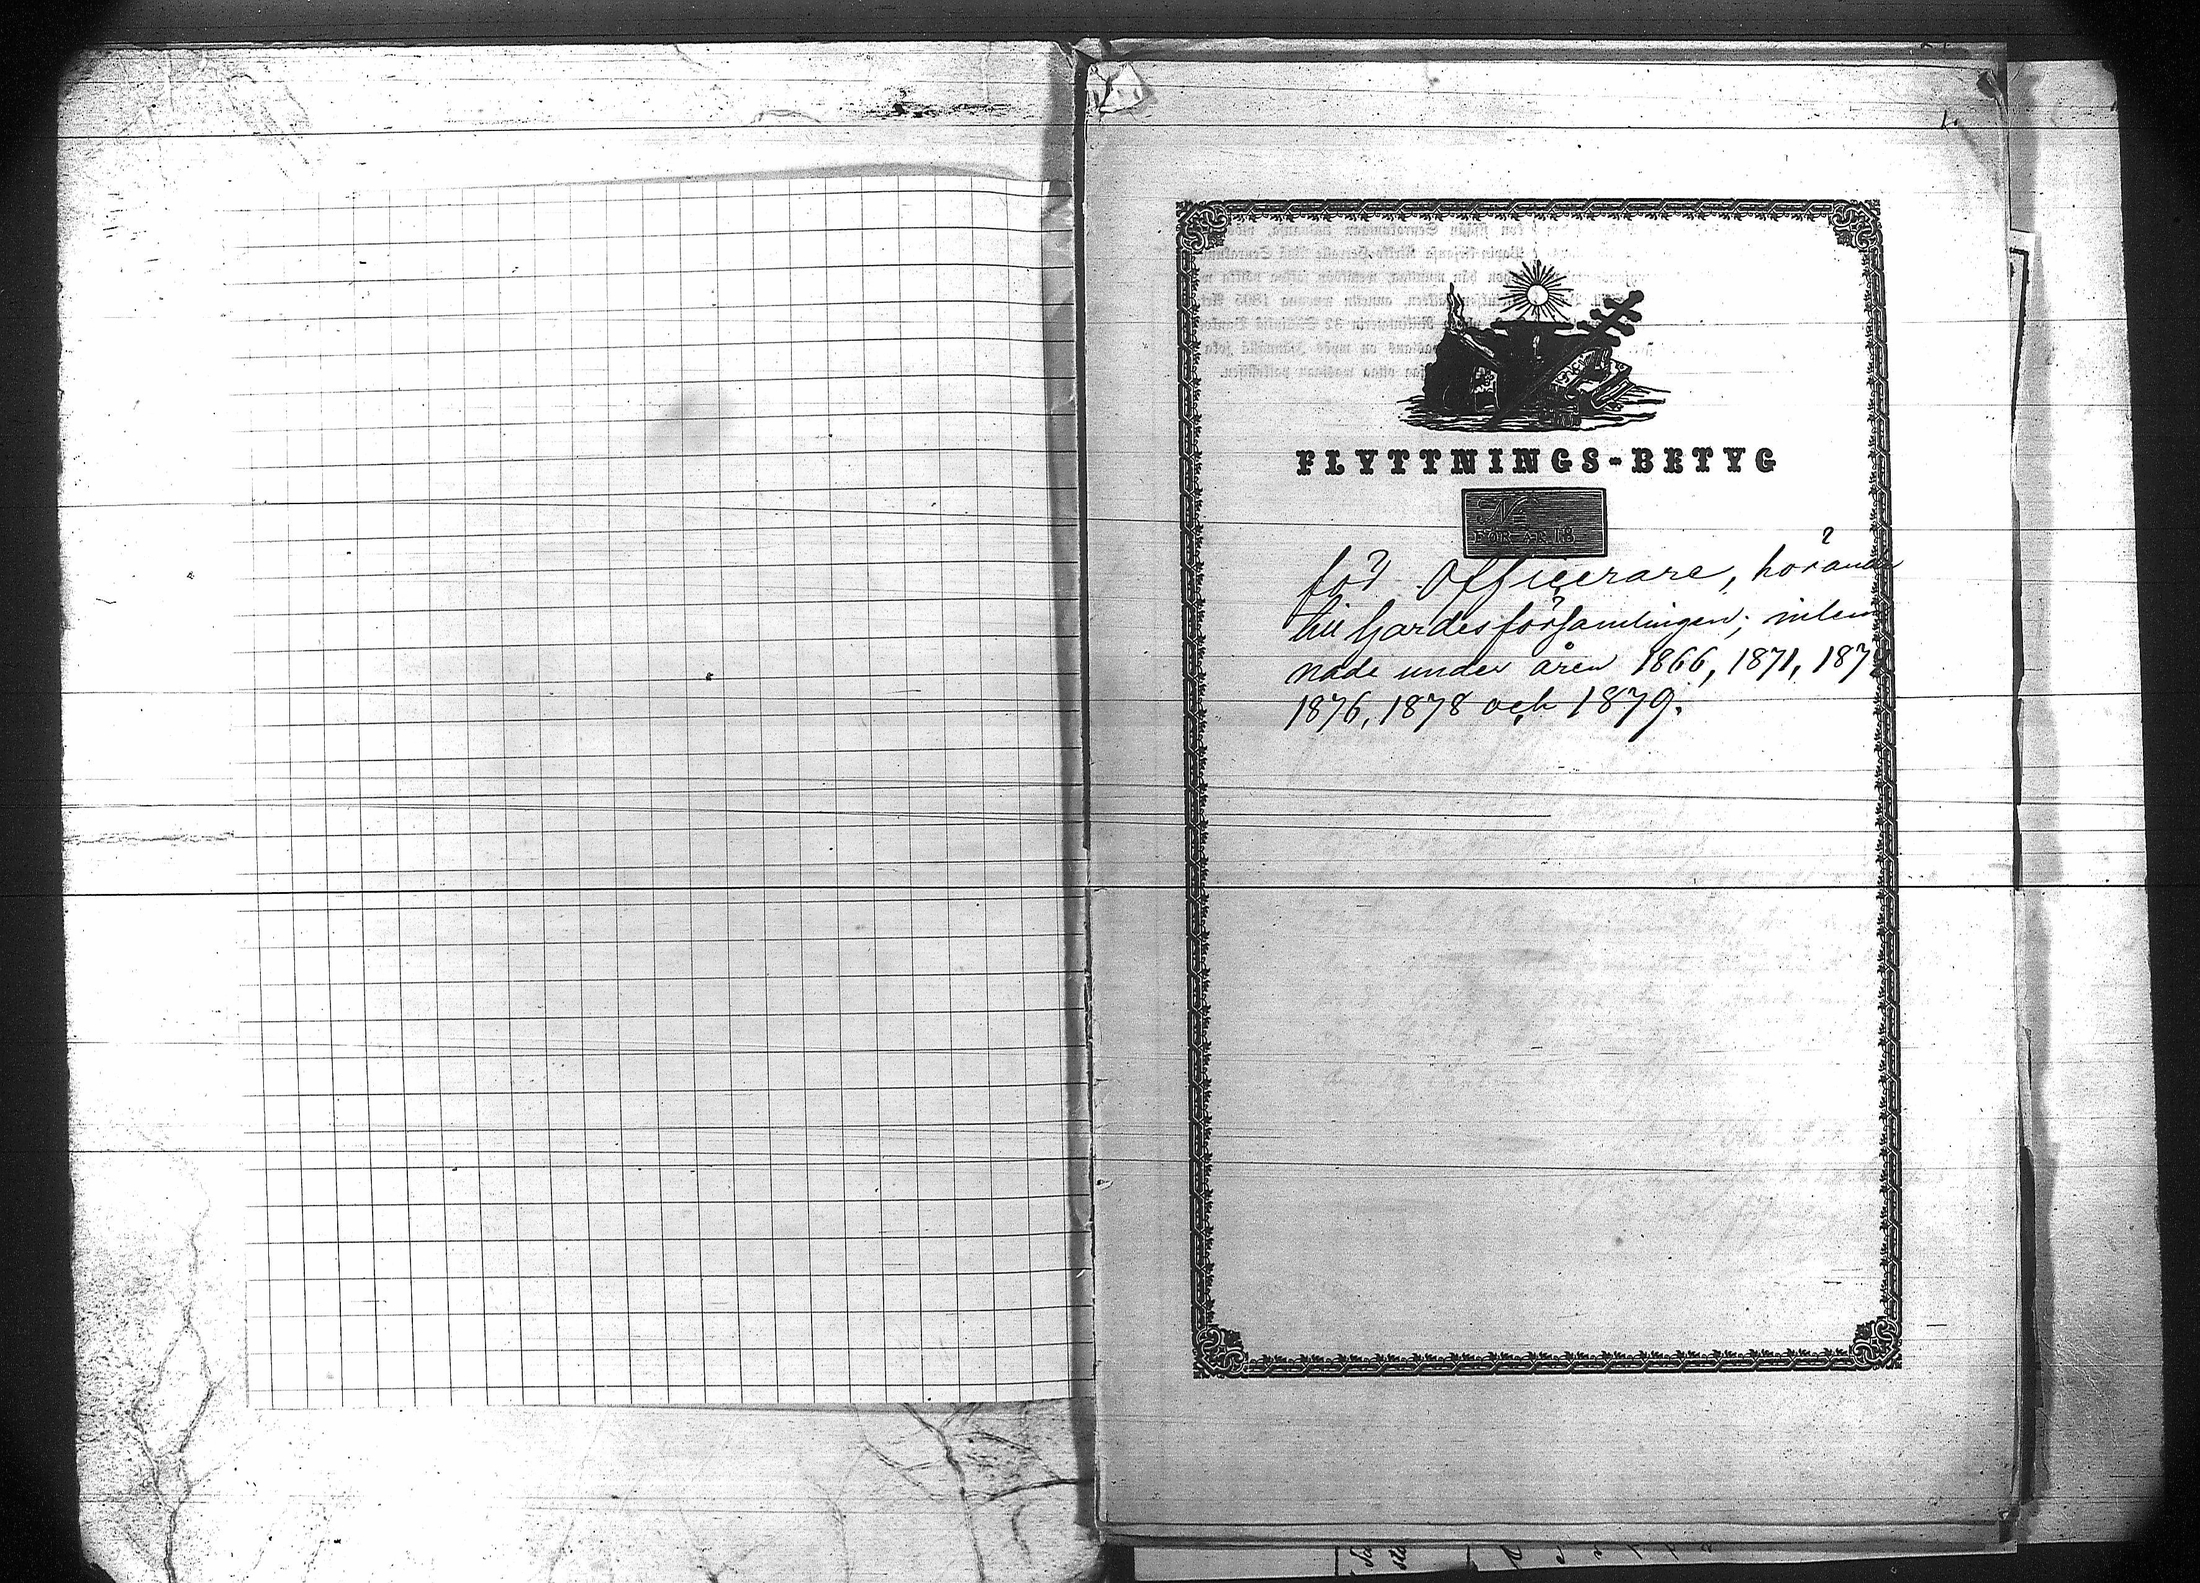 1.
FLYTTNINGS-BETYG
No
FÖR ÅR 18
för Officerare, hörande
till Gardesförsamlingen, inlem
nade under åren 1866, 1871, 187
1876, 1878 och 1879.